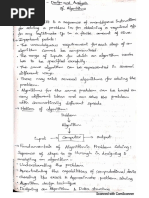 Design and Analysis
of Algorithms
is a sequence of unambiguous instructions
for solving a problem to for obtaining a required output for
any legitimate i/p in a finite amount of time
Important points:-
The unambiguous requirement for each step of an
algorithm cannot be
The range of i/p's for which an algorithm works has to
be specified carefully
The same algorithm can be represented in several
different ways
There may exist several algorithms for solving the
same problem
Algorithms for the same problem can be based on
very different ideas and can solve the problem
with dramatically different speeds
Notion of algorithm
Problem
Algorithm
Input
Computer
Output
Fundamentals of Algorithmic Problem solving
Sequence of steps to go through in designing &
analyzing an algorithm
Understanding the problem
Ascertaining the capabilities of computational device
Choosing between exact & approximate problem solving
Algorithm design technique
Designing an Algorithm & Data structure
Scanned with CamScanner